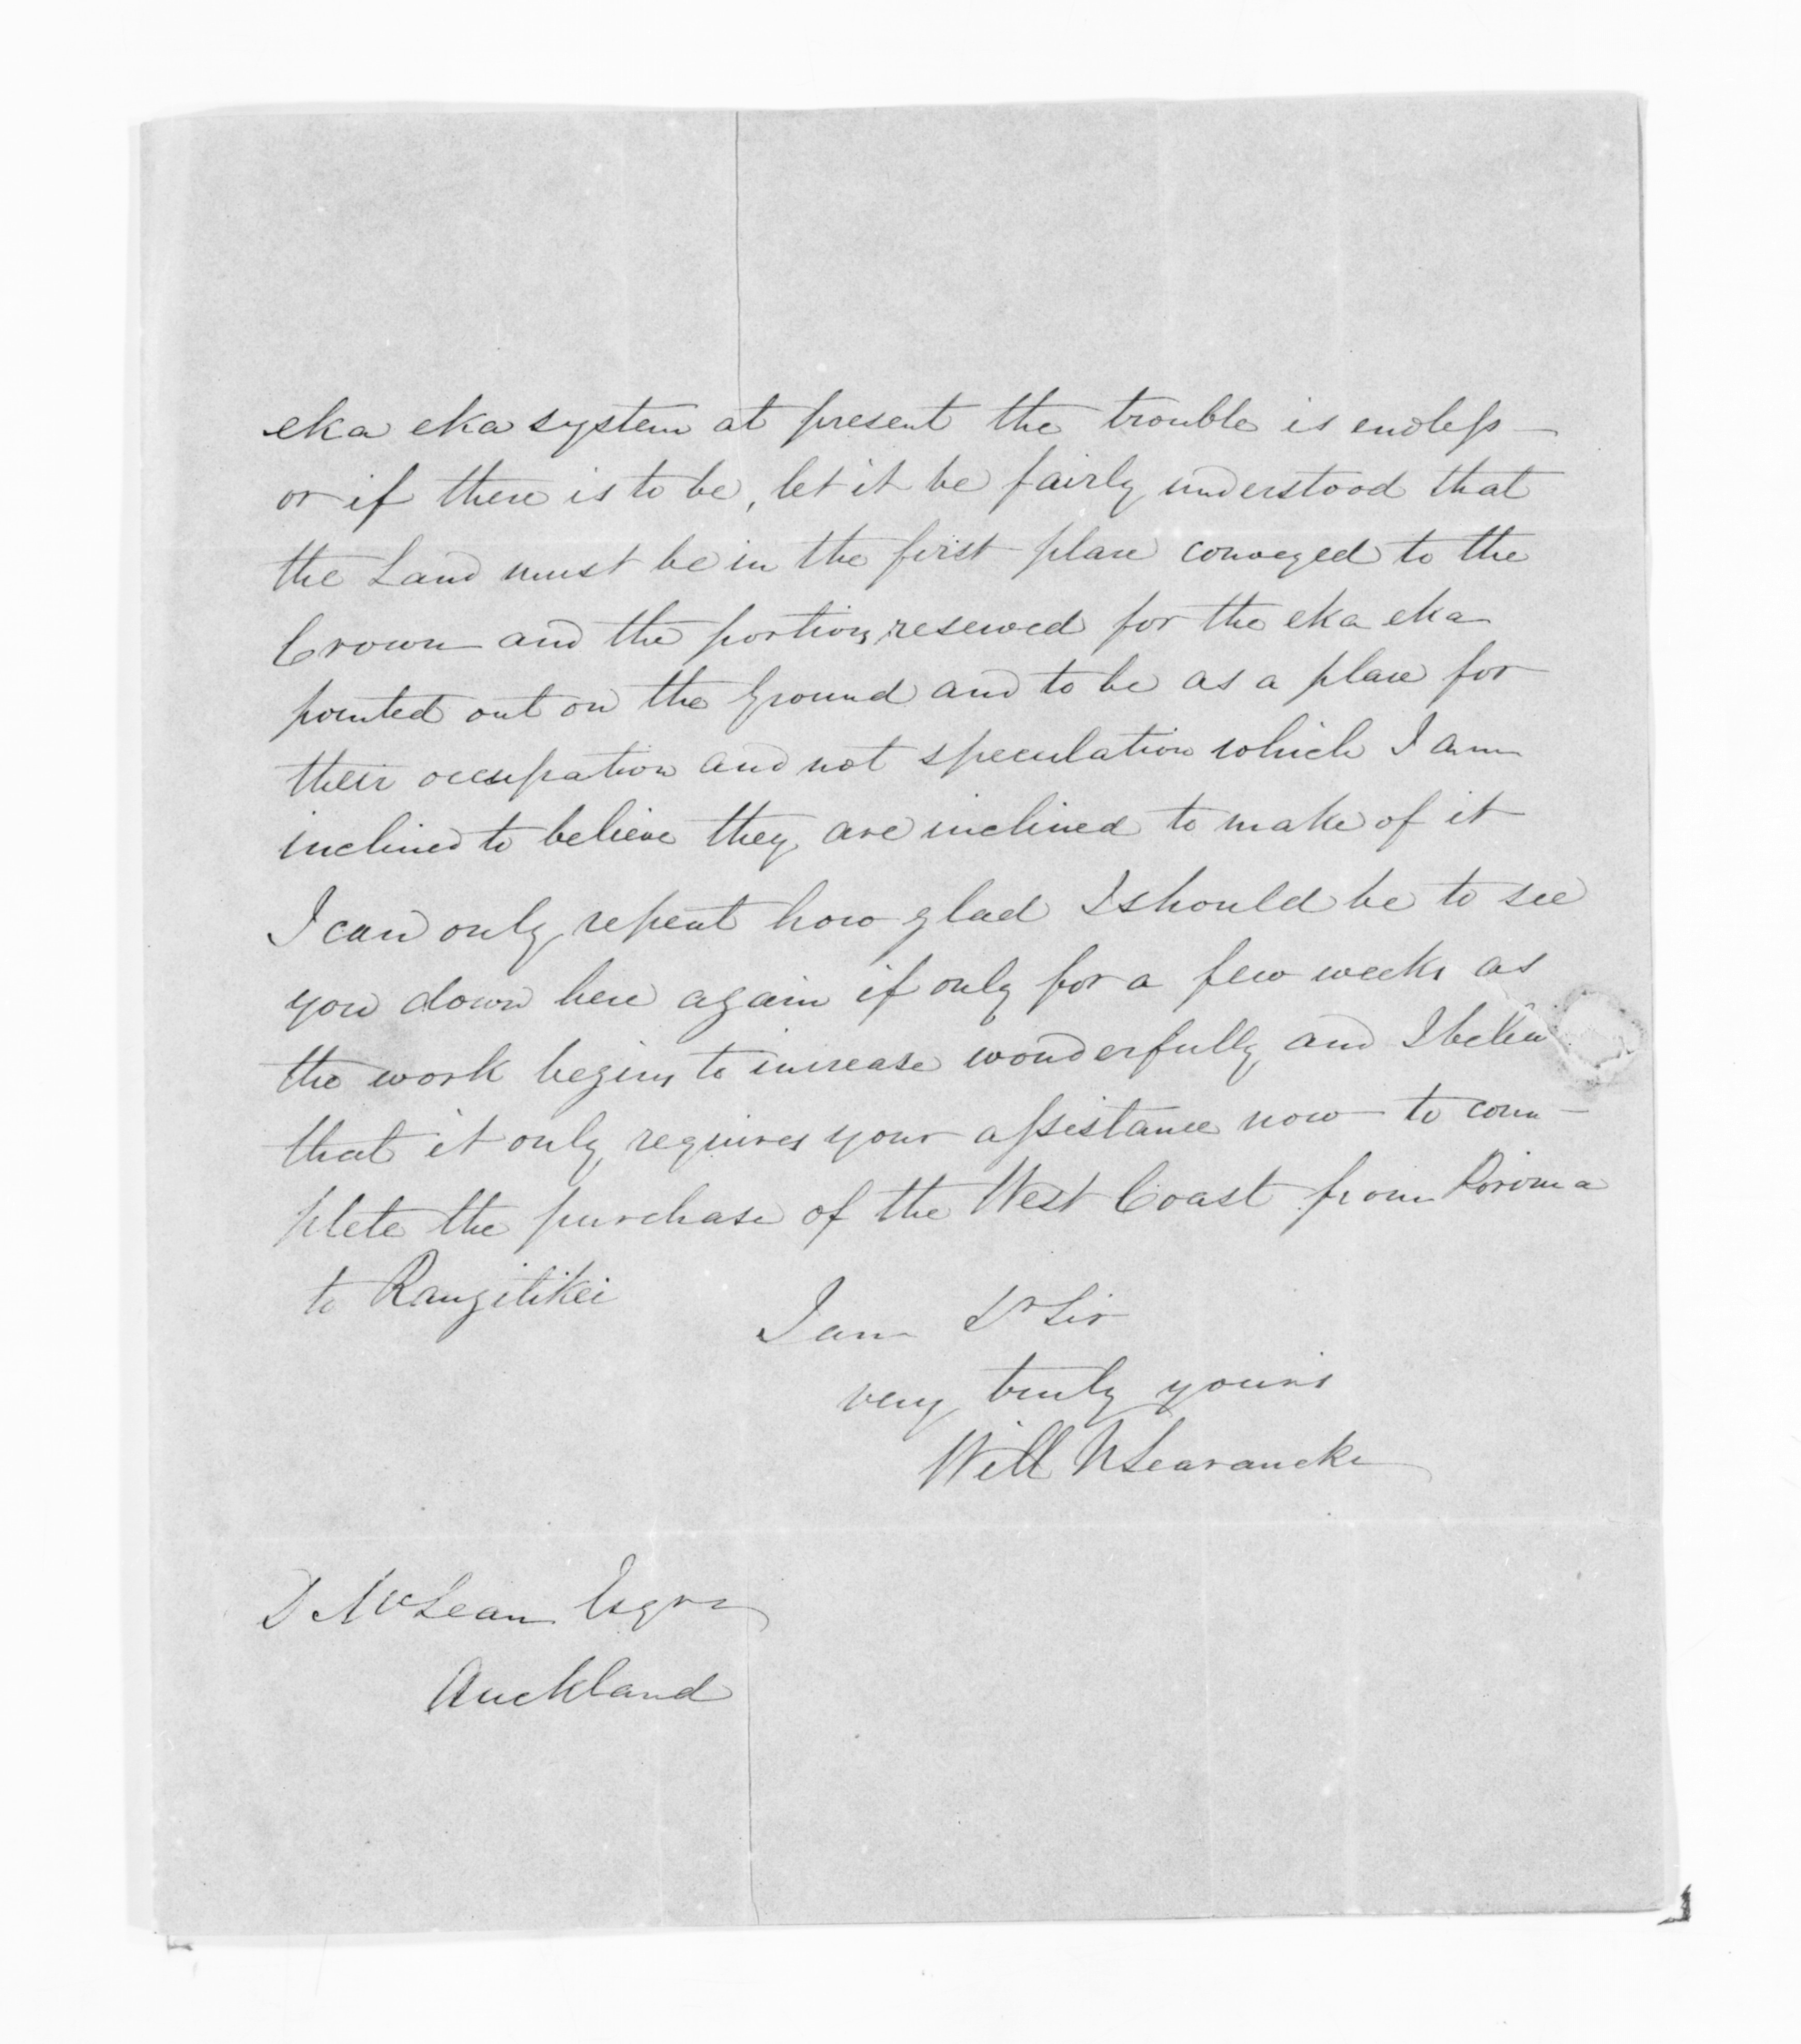 eka eka system at present the trouble is endless —
or if there is to be, let it be fairly understood that
the Land must be in the first place conveyed to the
Crown and the portions reserved for the eka eka
pointed out on the Ground and to be as a place for
their occupation and not speculation which I am
inclined to believe they are inclined to make of it
I can only repeat how glad I should be to see
you down here again if only for a few weeks as
the work begins to increase wonderfully and I believe
that it only requires your assistance now to com-
plete the purchase of the West Coast from Porirua
to Rangitikei
I am Dr Sir
very truly yours
Will N Searancke
D McLean Esqre
Auckland